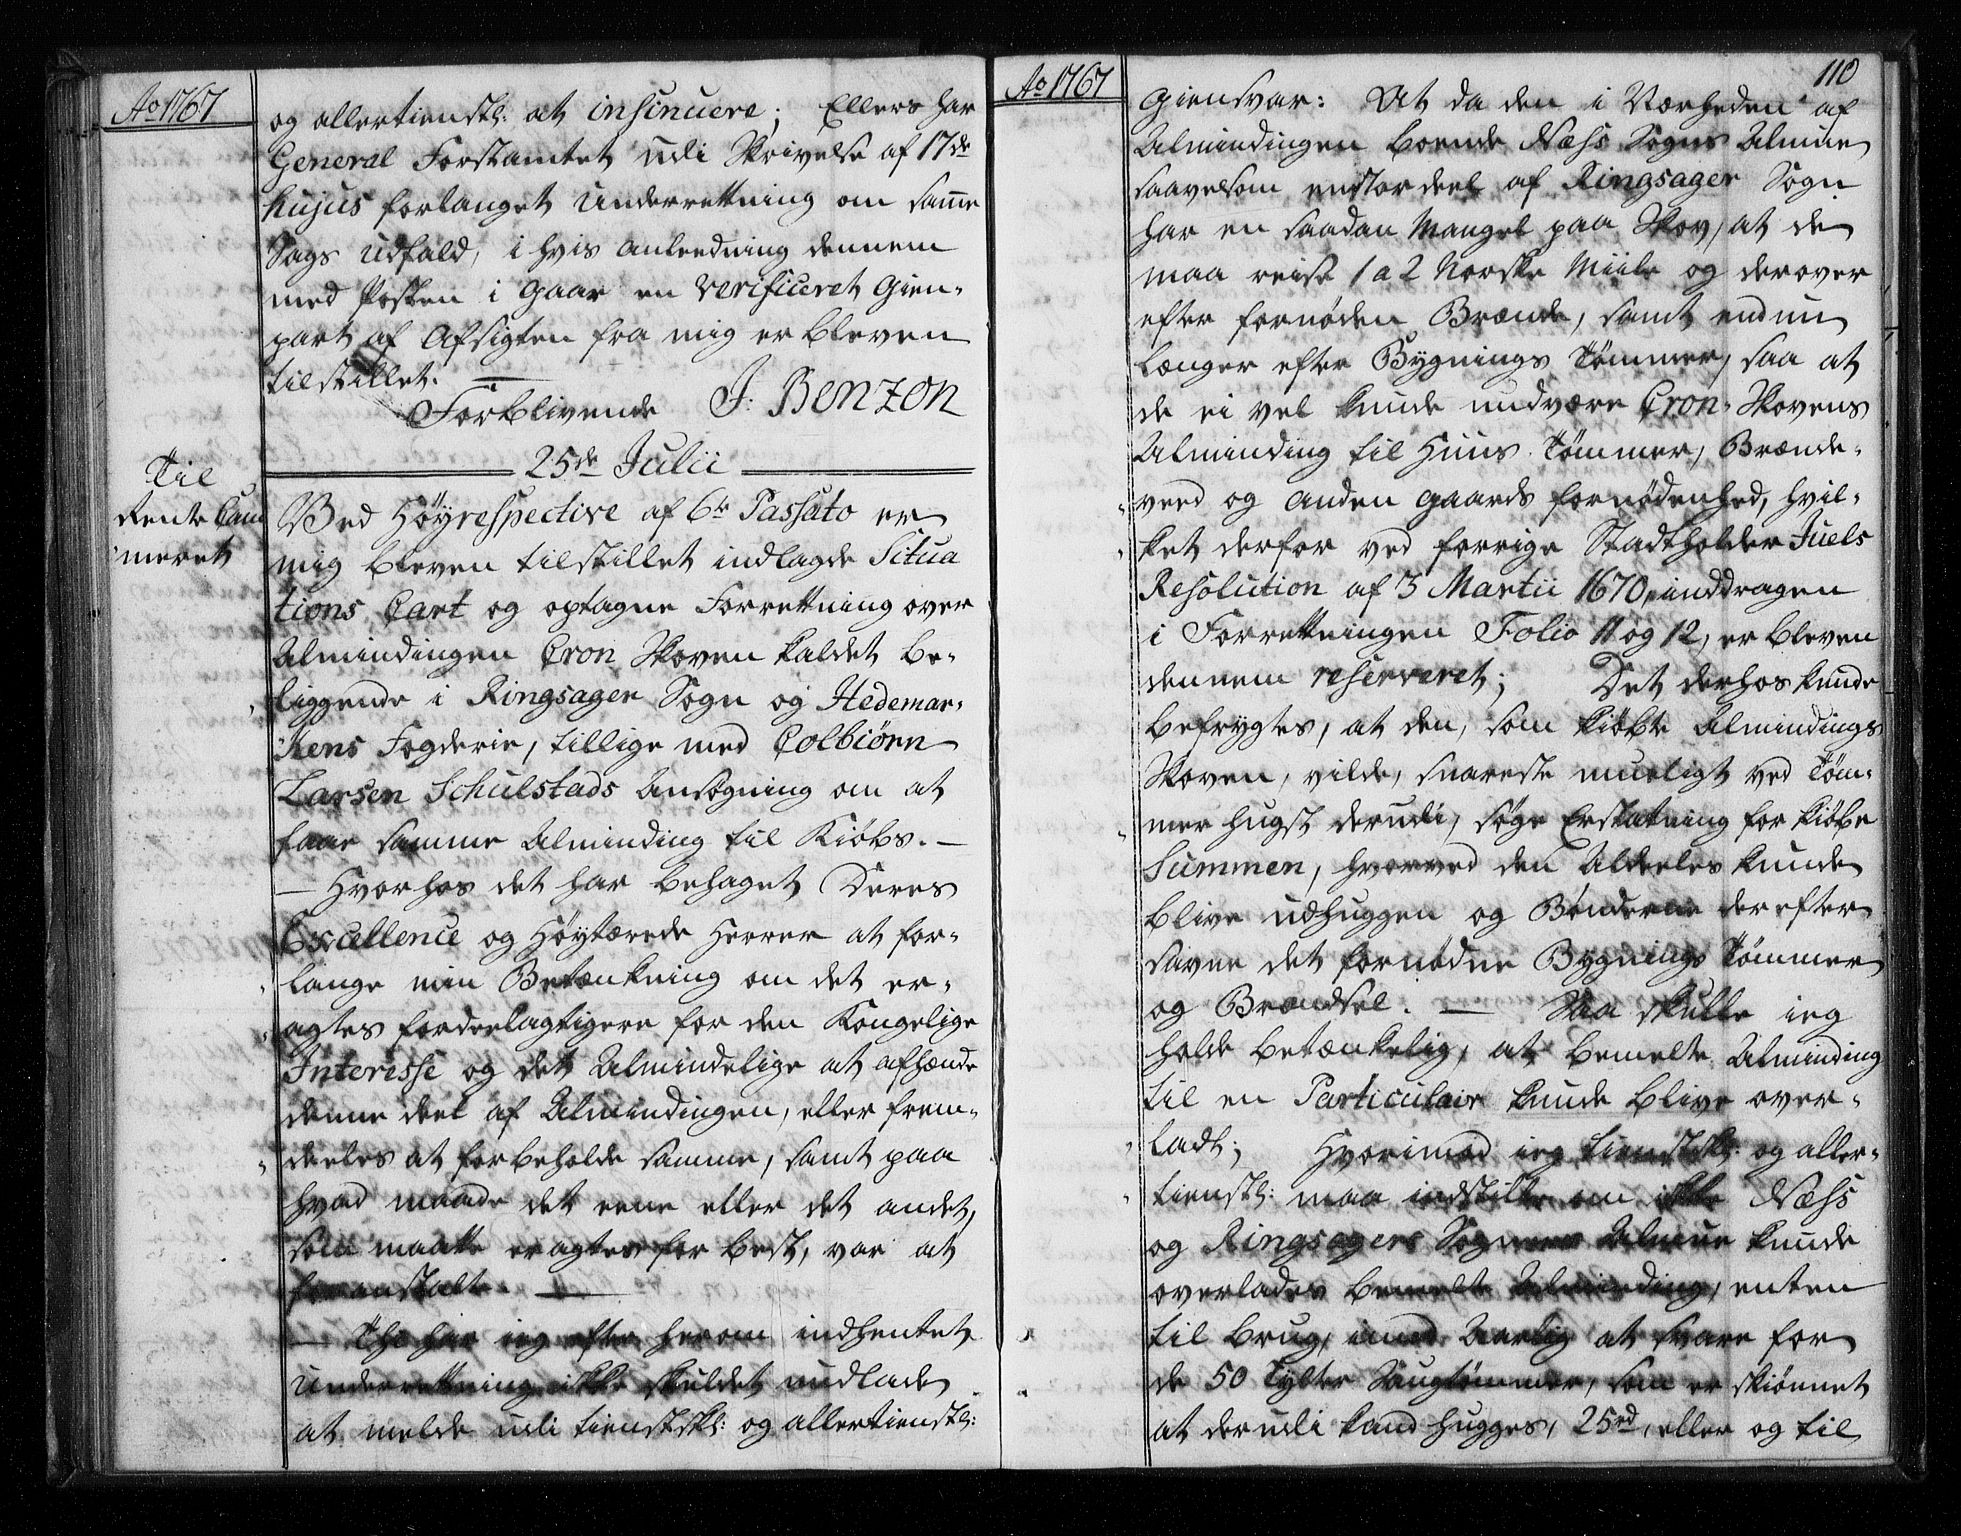 Ao 1767
og allertienstl: at insinuere; Ellers har
General Forstamtet udi Skrivelse af 17de
hujus forlanget Underrettning om samme
Sags Udfald, i hvis anleedning dennem
med Posten i Gaar en verificeret Gien-
part af Afsigten fra mig er bleven
tilstillet.
Forblivende J. Benzon
25de Julii
Til
Rente Cam
meret
Ved Höyrespective af 6te Passato er
mig bleven tilstillet indlagde Situa
tions Cart og optagne Forrettning over
Almindingen Cron Skoven kaldet be-
liggende i Ringsager Sogn og Hedemar-
kens Fogderie, tillige med Colbiörn
Larsen Schulstads Ansögning om at
faae samme Alminding til Kiöbs. -
- Hvorhos det har behaget Deres
Excellence og Höytærede Herrer at for-
lange min Betænkning om det er-
agtes fordeelagtigere for den Kongelige
Interesse og det Almindelige at afhænde
denne deel af Almindingen, eller frem-
deeles at forbeholde samme, samt paa
hvad maade det eene eller det andet,
som maatte eragtes for best, var at
foranstalte. -
- Thi har ieg efter herom indhentet
Underrettning ikke skuldet undlade
at melde udi tienstskl: og allertienstl:
Ao 1767
110
Giensvar: At da den i Nærheden af
Almindingen boende Næss Sogns Almue
saavelsom enstor deel af Ringsager Sogn
har en saadan Mangel paa Skov, at de
maa reise 1 a 2 Norske Miile og derover
efter fornøden Brænde, samt endnu
længer efter Bygnings Tömmer, saa at
de ei vel kunde undvære Cron-Skovens
Alminding til Huus Tömmer, Brænde-
veed og anden gaards fornødenhed, hvil-
ket derfor ved forrige Stadtholder Juels
Resolution af 3 Martii 1670, inddragen
i Forrettningen Folio 11 og 12, er bleven
dennem reserveret; Det derhos kunde
befrygtes, at den, som kiöbte Almindings
Skoven, vilde, snareste mueligt ved Töm-
mer hugst derudi, söge Erstatning for kiöbe
Summen, hvorved den Aldeeles kunde
blive udhuggen og Bønderne derefter
savne det fornødne Bygnings Tömmer
og Brændsel. - Saa skulle ieg
holde betænkelig, at bemelte Alminding
til en Particulair kunde blive over-
ladt; Hvorimod ieg tienstskl: og aller-
tienstl: maa indstille om ikke Næss
og Ringsagers Sognes Almue kunde
overlades bemelte Alminding, enten
til brug, imod Aarlig at svare for
de 50 Tylter Saugtömmer, som er skiönnet
at derudi kand hugges, 25rd, eller og til